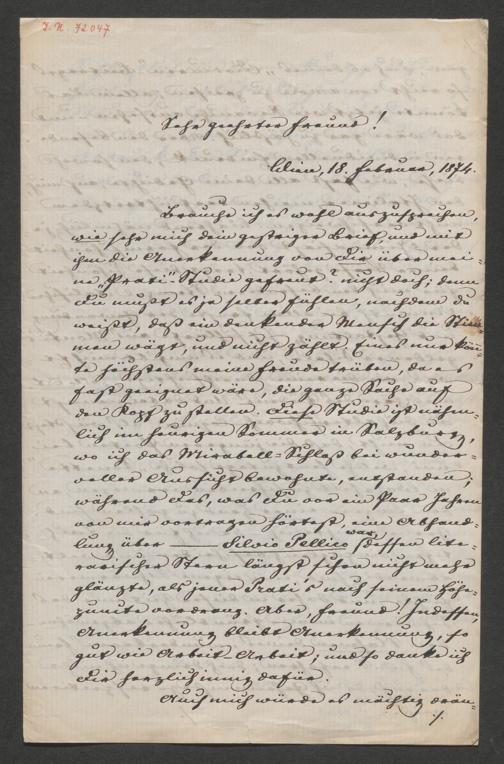 I. N. 72047
Sehr geehrter Freund!
Wien, 18. Februar, 1874.
Brauche ich es wohl auszusprechen,
wie sehr mich dein gestriger Brief, und mit
ihm die Anerkennung von Dir über mei-
ne „Prati"-Studie gefreut? nicht doch; denn
Du mußt es ja selber fühlen, nachdem du
weißt, daß ein denkender Mensch die Stim-
men wägt, und nicht zählt. Eines nur kön̄-
te höchstens meine Freude trüben, da es
fast geeignet wäre, die ganze Sache auf
den Kopf zu stellen. Diese Studie ist näm-
lich im heurigen Sommer in Salzburg,
wo ich das Mirabell-Schloß bei wunder-
voller Aussicht bewohnte, entstanden;
während Das, was Du vor ein Paar Jahren
von mir vortragen hörtest, eine Abhand-
lung über Silvio Pellico war, dessen lite-
rarischer Stern längst schon nicht mehr
glänzte, als jener Prati's nach seinem Höhe-
punkte vordrang. Aber, Freund! Indessen,
Anerkennung bleibt Anerkennung, so
gut wie Arbeit Arbeit; und so danke ich
Dir herzlich innig dafür.
Auch mich würde es mächtig drän-
./.